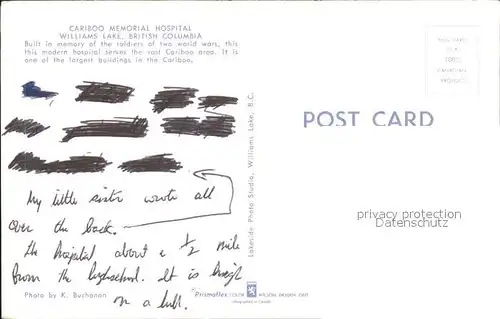 CARIBOO MEMORIAL HOSPITAL
WILLIAMS LAKE, BRITISH COLUMBIA
Built in memory of the soldiers of two world wars, this
this modern hospital serves the vast Cariboo area. It is
one of the largest buildings in the Cariboo.
POST CARD
Lakeside Photo Studio, Williams Lake, B.C.
My little sister wrote all
over the back.
the hospital about a 1/2 mile
from the highschool. It is
on a hill.
privacy protection
Datenschutz
Photo by K. Buchanan
Prismaflex COLOR